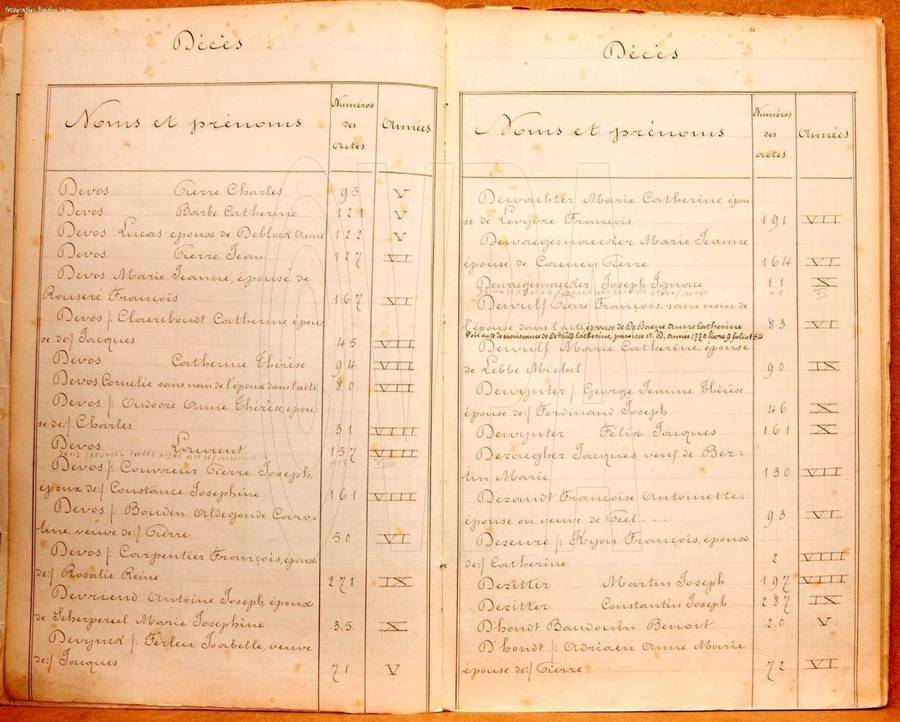 Décès
Noms et prénoms
Numéros
des
actes
Années
Devos Pierre Charles 95 V
Devos Barbe Catherine 121 V
Devos Lucas époux de Deblock Anne 122 V
Devos Pierre Jean 127 VI
Devos Marie Jeanne, épouse de
Rouseré François 167 VI
Devos /: Claerboudt Catherine épou
se de:/ Jacques 45 VII
Devos Catherine Thérèse 94 VII
Devos Cornélie sans nom de l'époux dans l'acte 80 VII
Devos /: Oudoore Anne Thérèse, épou:
se de:/ Charles 31 VIII
Devos Laurent 157 VIII
Devos /: Couvreur Pierre Joseph,
époux de:/ Constance Josephine 161 VIII
Devos /: Bouden Aldegonde Caro:
line, veuve de:/ Pierre 50 VI
Devos /: Carpentier François, époux
de:/ Rosalie Reine 271 IX
Devriend Antoine Joseph, époux
de Scherpereil Marie Josephine 35 X
Devynck /: Ferlen Isabelle, veuve
de:/ Jacques 71 V
Décès
Noms et prénoms
Numéros
des
actes
Années
Dewachter Marie Catherine épou
se de Lévèvre François 191 VII
Dewaegemaecker Marie Jeanne
épouse de Coenen Pierre 164 VI
Dewaegemaecker Joseph Ignace 11 X
Dewulf Pierre François, sans nom de
l'épouse dans l'acte, époux de De Baene Anne Catherine 83 VI
Dewulf Marie Catherine, épouse
de Lebbe Michel 90 IX
Dewynter /: George Jeanne Thérèse
épouse de:/ Ferdinand Joseph 46 X
Dewynter Félix Jacques 161 X
Dezaegher Jacques, veuf de Ber:
tin Marie 130 VII
Dezandt Françoise Antoinette
épouse ou veuve de Geel . . . 93 VI
Dezeure /: Kyon François, époux
de:/ Catherine 2 VIII
Dezitter Martin Joseph 197 VIII
Dezitter Constantin Joseph 287 IX
D'hondt Baudouin Benoit 20 V
D'hondt /: Adriaen Anne Marie
épouse de:/ Pierre 72 VI